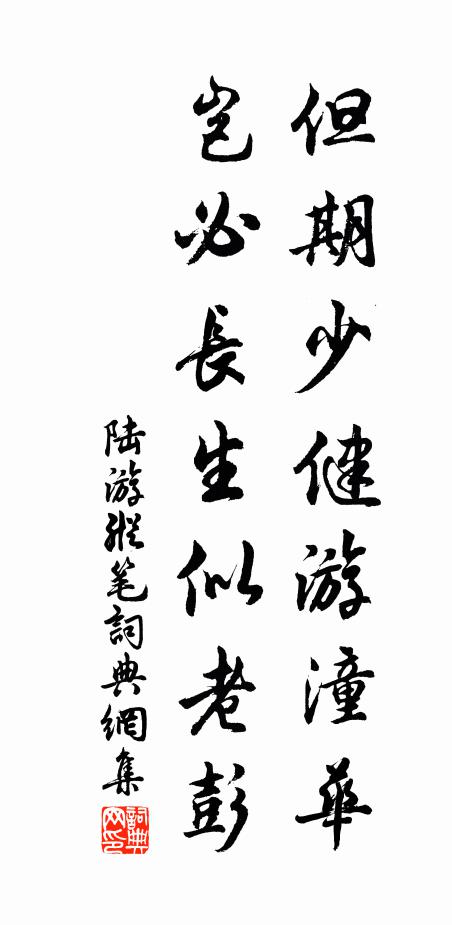 但期少健游潼華
豈必長生似老彭
陆游縱笔詞典網集
詞典网印